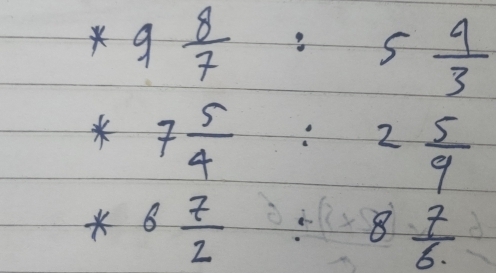 * 9 8/7 : 5 9/3
* 7 5/4 : 2 5/9
* 6 7/2 : 8 7/6.